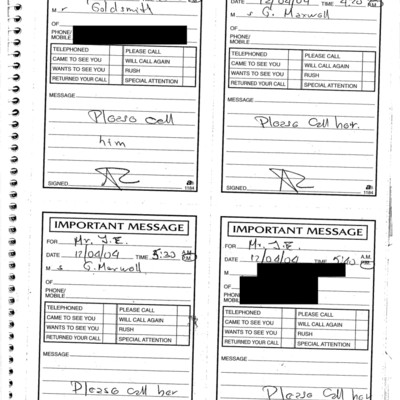 M r Goldsmith
OF
PHONE/
MOBILE
TELEPHONED PLEASE CALL
CAME TO SEE YOU WILL CALL AGAIN
WANTS TO SEE YOU RUSH
RETURNED YOUR CALL SPECIAL ATTENTION
MESSAGE
Please call
him
SIGNED
1184
DATE 12/04/04 TIME P.M.
M s G. Maxwell
OF
PHONE/
MOBILE
TELEPHONED PLEASE CALL
CAME TO SEE YOU WILL CALL AGAIN
WANTS TO SEE YOU RUSH
RETURNED YOUR CALL SPECIAL ATTENTION
MESSAGE
Please call her.
SIGNED
1184
IMPORTANT MESSAGE
FOR Mr. J.E.
DATE 12/04/04 TIME 5:20 A.M.
P.M.
M s G. Maxwell
OF
PHONE/
MOBILE
TELEPHONED PLEASE CALL
CAME TO SEE YOU WILL CALL AGAIN
WANTS TO SEE YOU RUSH
RETURNED YOUR CALL SPECIAL ATTENTION
MESSAGE
Please call her
IMPORTANT MESSAGE
FOR Mr. J.E.
DATE 12/04/04 TIME A.M.
P.M.
M
OF
PHONE/
MOBILE
TELEPHONED PLEASE CALL
CAME TO SEE YOU WILL CALL AGAIN
WANTS TO SEE YOU RUSH
RETURNED YOUR CALL SPECIAL ATTENTION
MESSAGE
Please call her